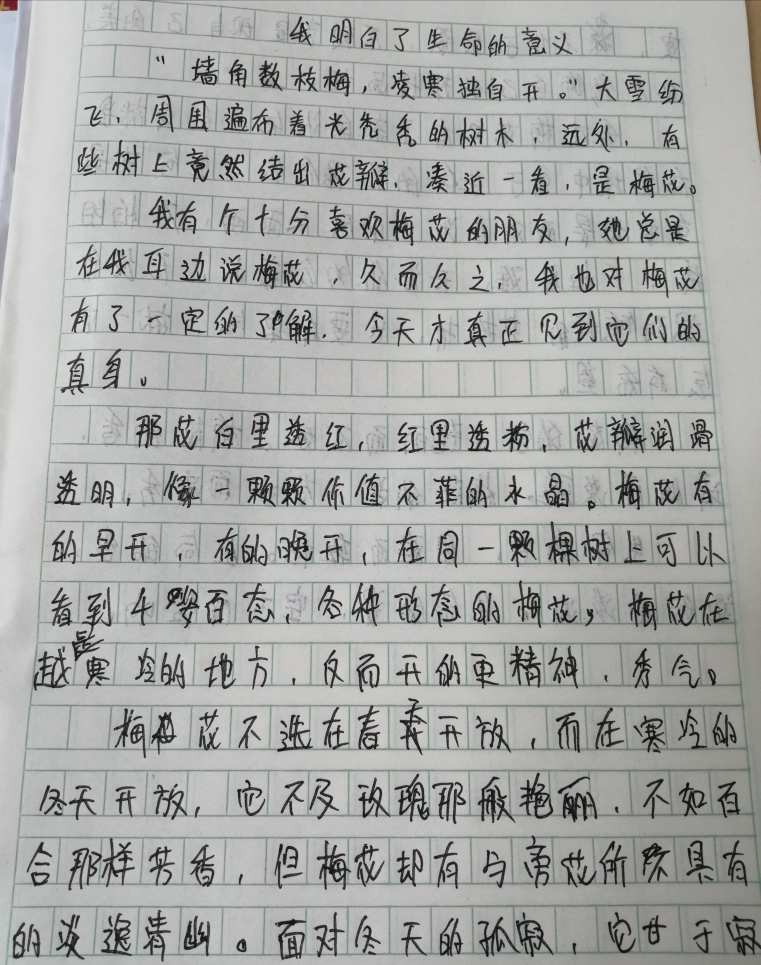 我明白了生命的意义
“墙角数枝梅，凌寒独自开。”大雪纷
飞，周围遍布着光秃秃的树木，远处，有
些树上竟然结出花瓣，凑近一看，是梅花。
我有个十分喜欢梅花的朋友，她总是
在我耳边说梅花，久而久之，我也对梅花
有了一定的了解，今天才真正见到它们的
真身。
那花白里透红，红里透粉，花瓣润滑
透明，像一颗颗价值不菲的水晶。梅花有
的早开，有的晚开，在同一颗棵树上可以
看到千姿百态，各种形态的梅花，梅花在
越是寒冷的地方，反而开的更精神，秀气。
梅花不选在春天开放，而在寒冷的
冬天开放，它不及玫瑰那般艳丽，不如百
合那样芳香，但梅花却有与旁花所不具有
的淡逸清幽。面对冬天的孤寂，它甘于寂